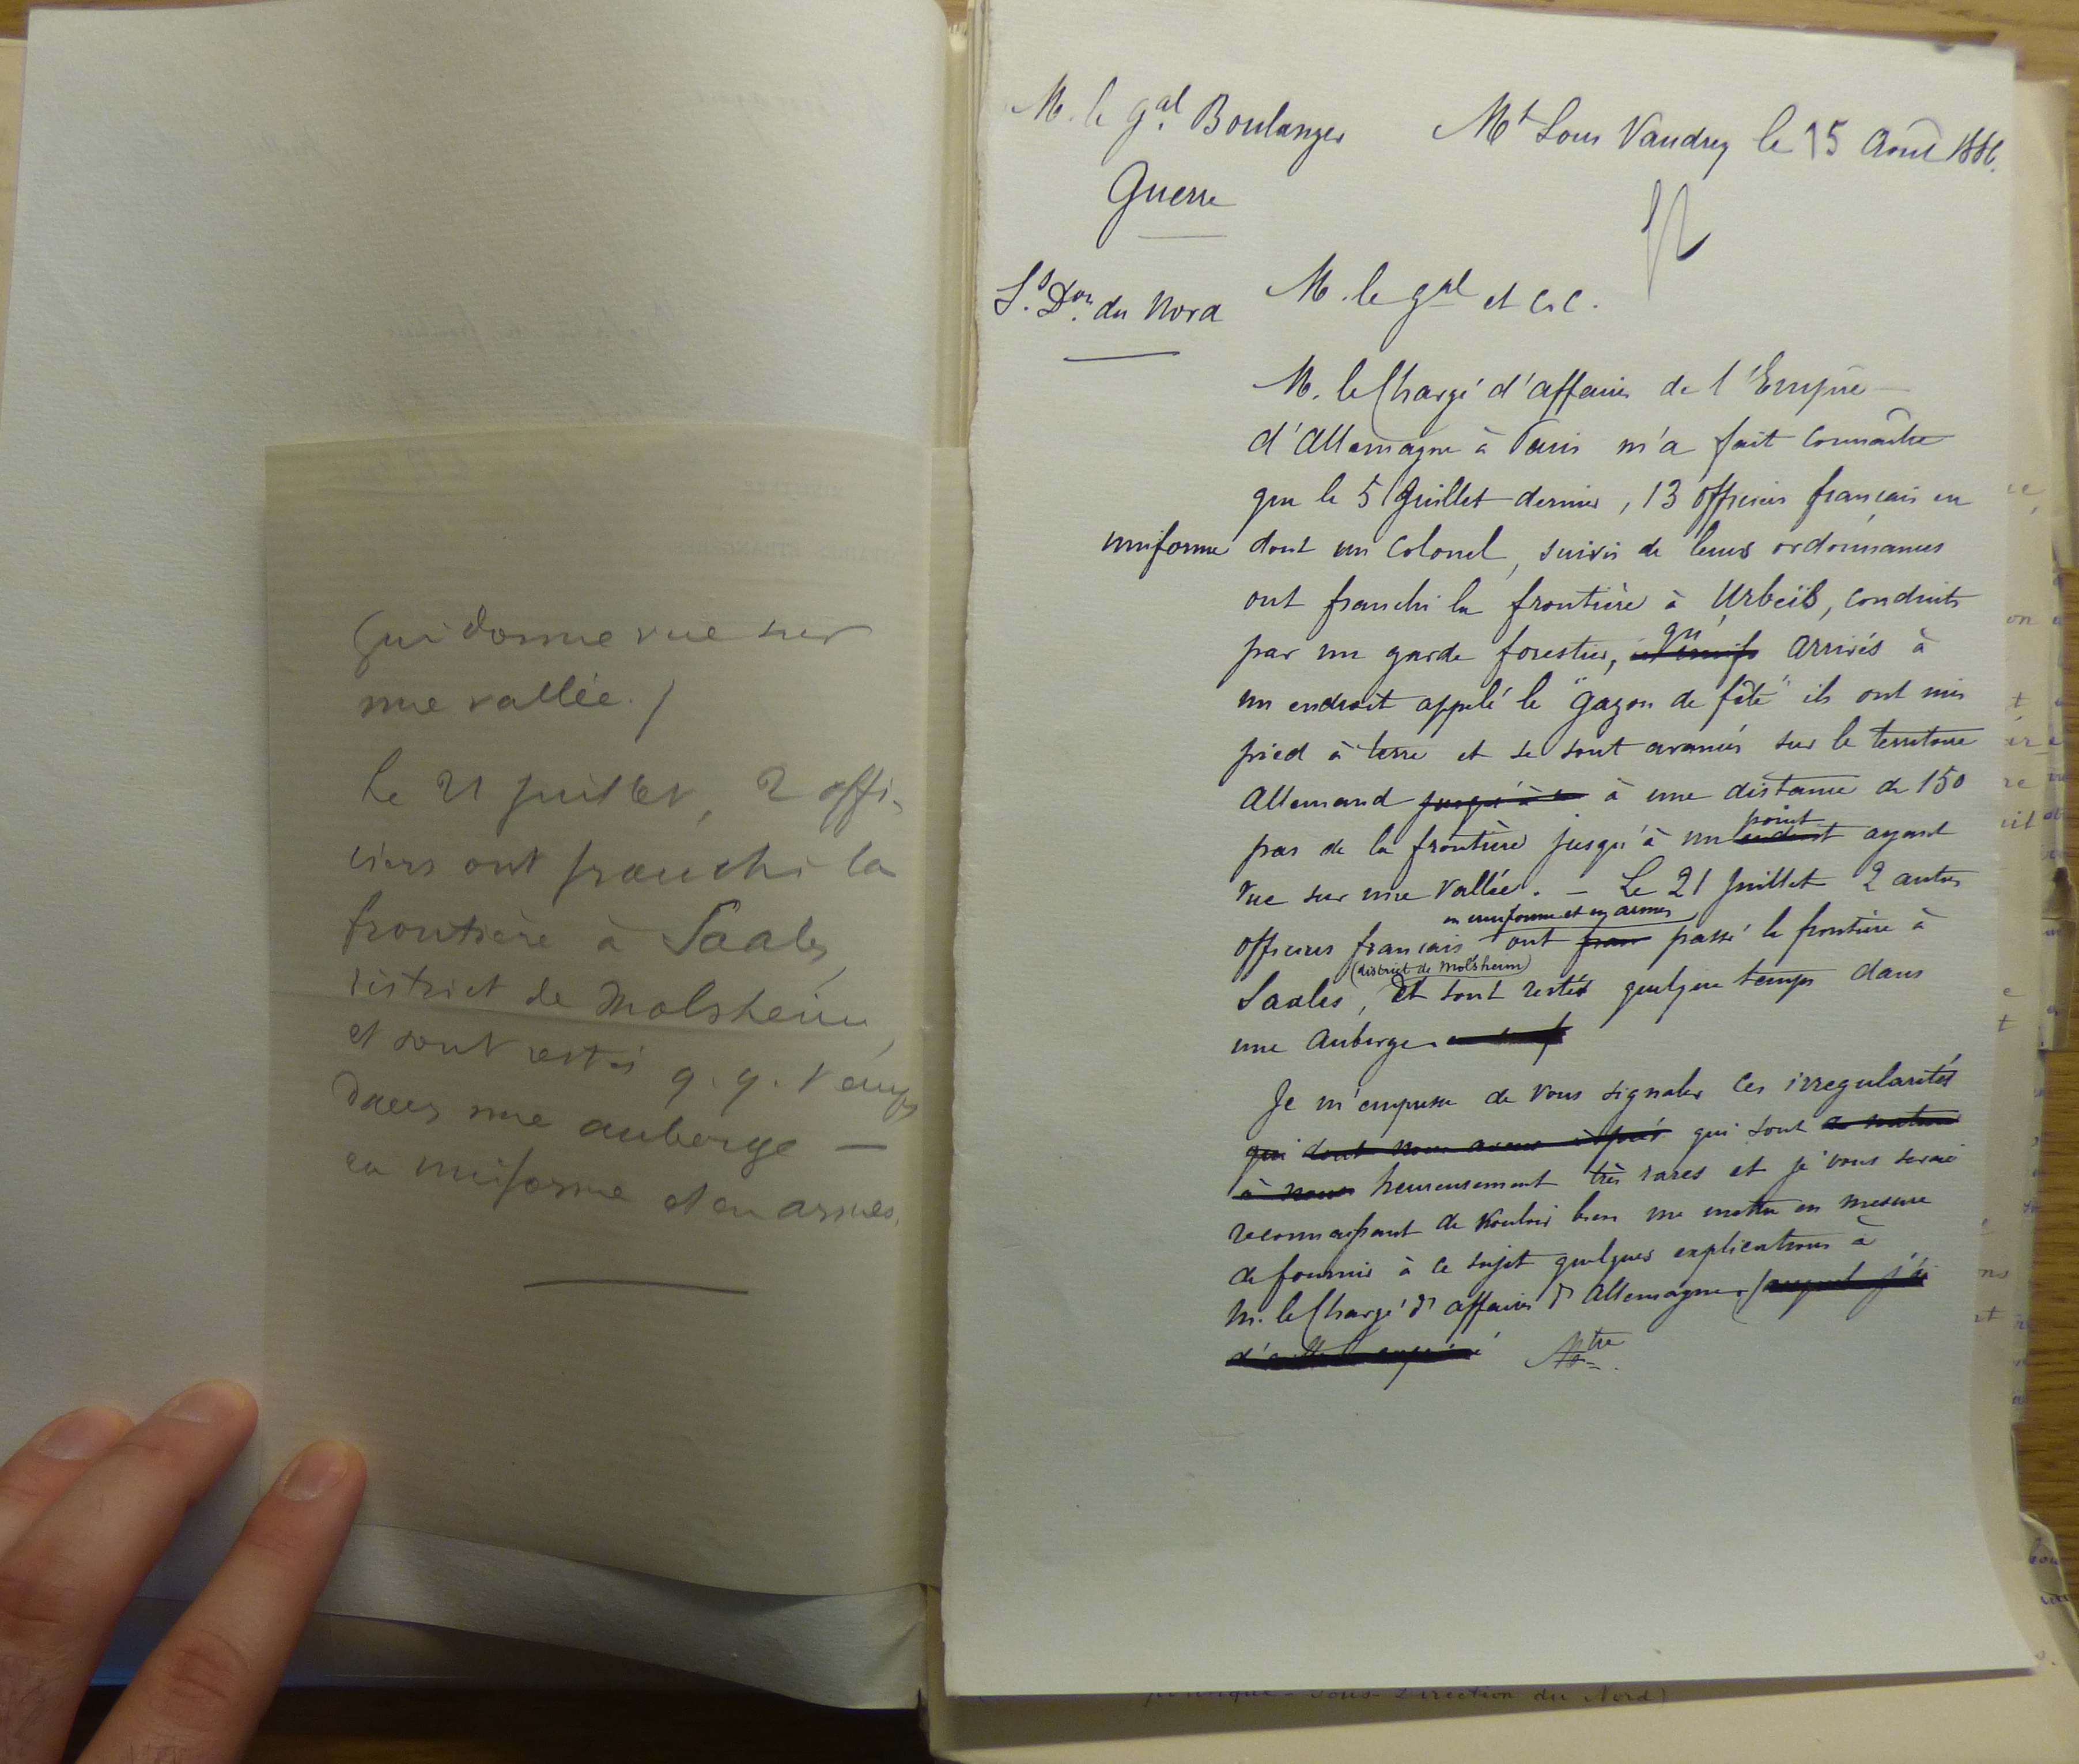 qui donne vue sur
une vallée.)
Le 21 juillet, 2 offi-
ciers ont franchi la
frontière à Saales,
district de Molsheim,
et sont restés q.q. temps
dans une auberge —
en uniforme et en armes.
M. le gal. Boulanger
Guerre
S.s Don. du Nord
Mt Sous Vaudrey le 15 Août 1886.
M. le gal et c&c.
M. le Chargé d'affaires de l'Empire
d'Allemagne à Paris m'a fait connaître
que le 5 Juillet dernier, 13 officiers français en
uniforme dont un Colonel, suivis de leurs ordonnances
ont franchi la frontière à Urbeis, conduits
par un garde forestier, qu' arrivés à
un endroit appelé le "gazon de fête" ils ont mis
pied à terre et se sont avancés sur le territoire
Allemand jusqu'à à une distance de 150
pas de la frontière jusqu'à un endroit point ayant
vue sur une vallée. — Le 21 Juillet 2 autres
officiers français en uniforme et en armes ont fran passé la frontière à
Saales, (district de Molsheim) et sont restés quelque temps dans
une Auberge.
Je m'empresse de vous signaler ces irregularités
qui dont nous avons qui sont de nature
à nous heureusement très rares et je vous serai
reconnaissant de vouloir bien me mettre en mesure
de fournir à ce sujet quelques explications à
M. le Chargé d'affaires d'Allemagne. auquel j'ai
politique - Sous-Direction du Nord)